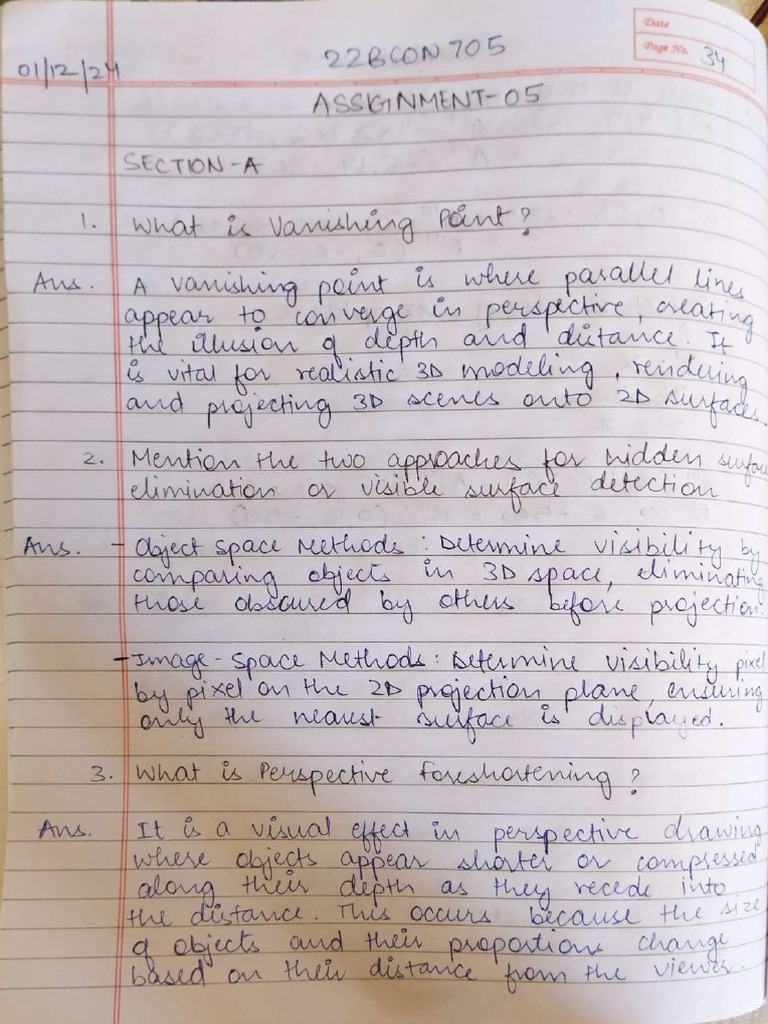 Date
Page No. 34
01/12/24
22BCON705
ASSIGNMENT-05
SECTION-A
1. What is Vanishing Point?
Ans. A vanishing point is where parallel lines
appear to converge in perspective, creating
the illusion of depth and distance. It
is vital for realistic 3D modeling, rendering
and projecting 3D scenes onto 2D surfaces.
2. Mention the two approaches for hidden surface
elimination or visible surface detection
Ans. - Object Space Methods: Determine visibility by
comparing objects in 3D space, eliminating
those obscured by others before projection.
- Image-Space Methods: Determine visibility pixel
by pixel on the 2D projection plane, ensuring
only the nearest surface is displayed.
3. What is Perspective foreshortening?
Ans. It is a visual effect in perspective drawing
where objects appear shorter or compressed
along their depth as they recede into
the distance. This occurs because the size
of objects and their proportions change
based on their distance from the viewer.